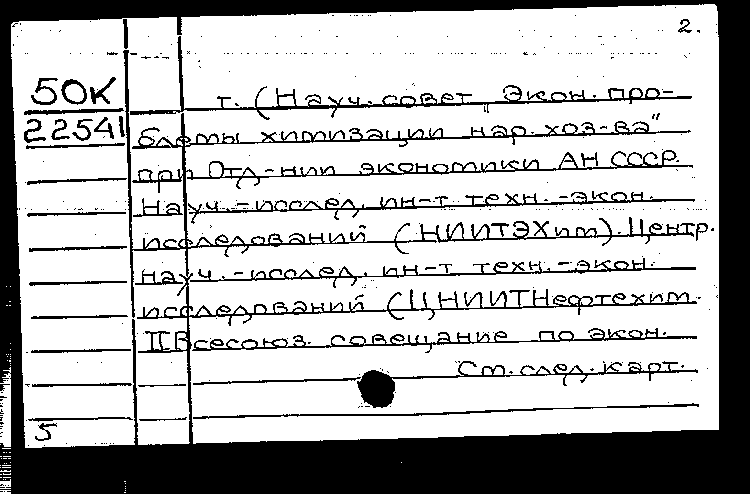 2.
50К
22541
т. (Науч. совет „Экон. про-
блемы химизации нар. хоз-ва"
при Отд-нии экономики АН СССР.
Науч.-исслед. ин-т техн.-экон.
исследований (НИИТЭХим). Центр.
науч.-исслед. ин-т техн.-экон.
исследований (ЦНИИТНефтехим.
II Всесоюз. совещание по экон.
См. след. карт.
5